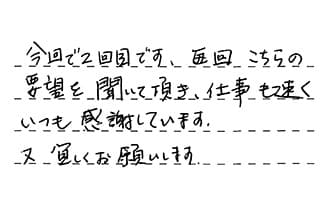 今回で2回目です、毎回 こちらの
要望を 聞いて頂き、仕事も速く
いつも 感謝しています.
又 宜しくお願いします.